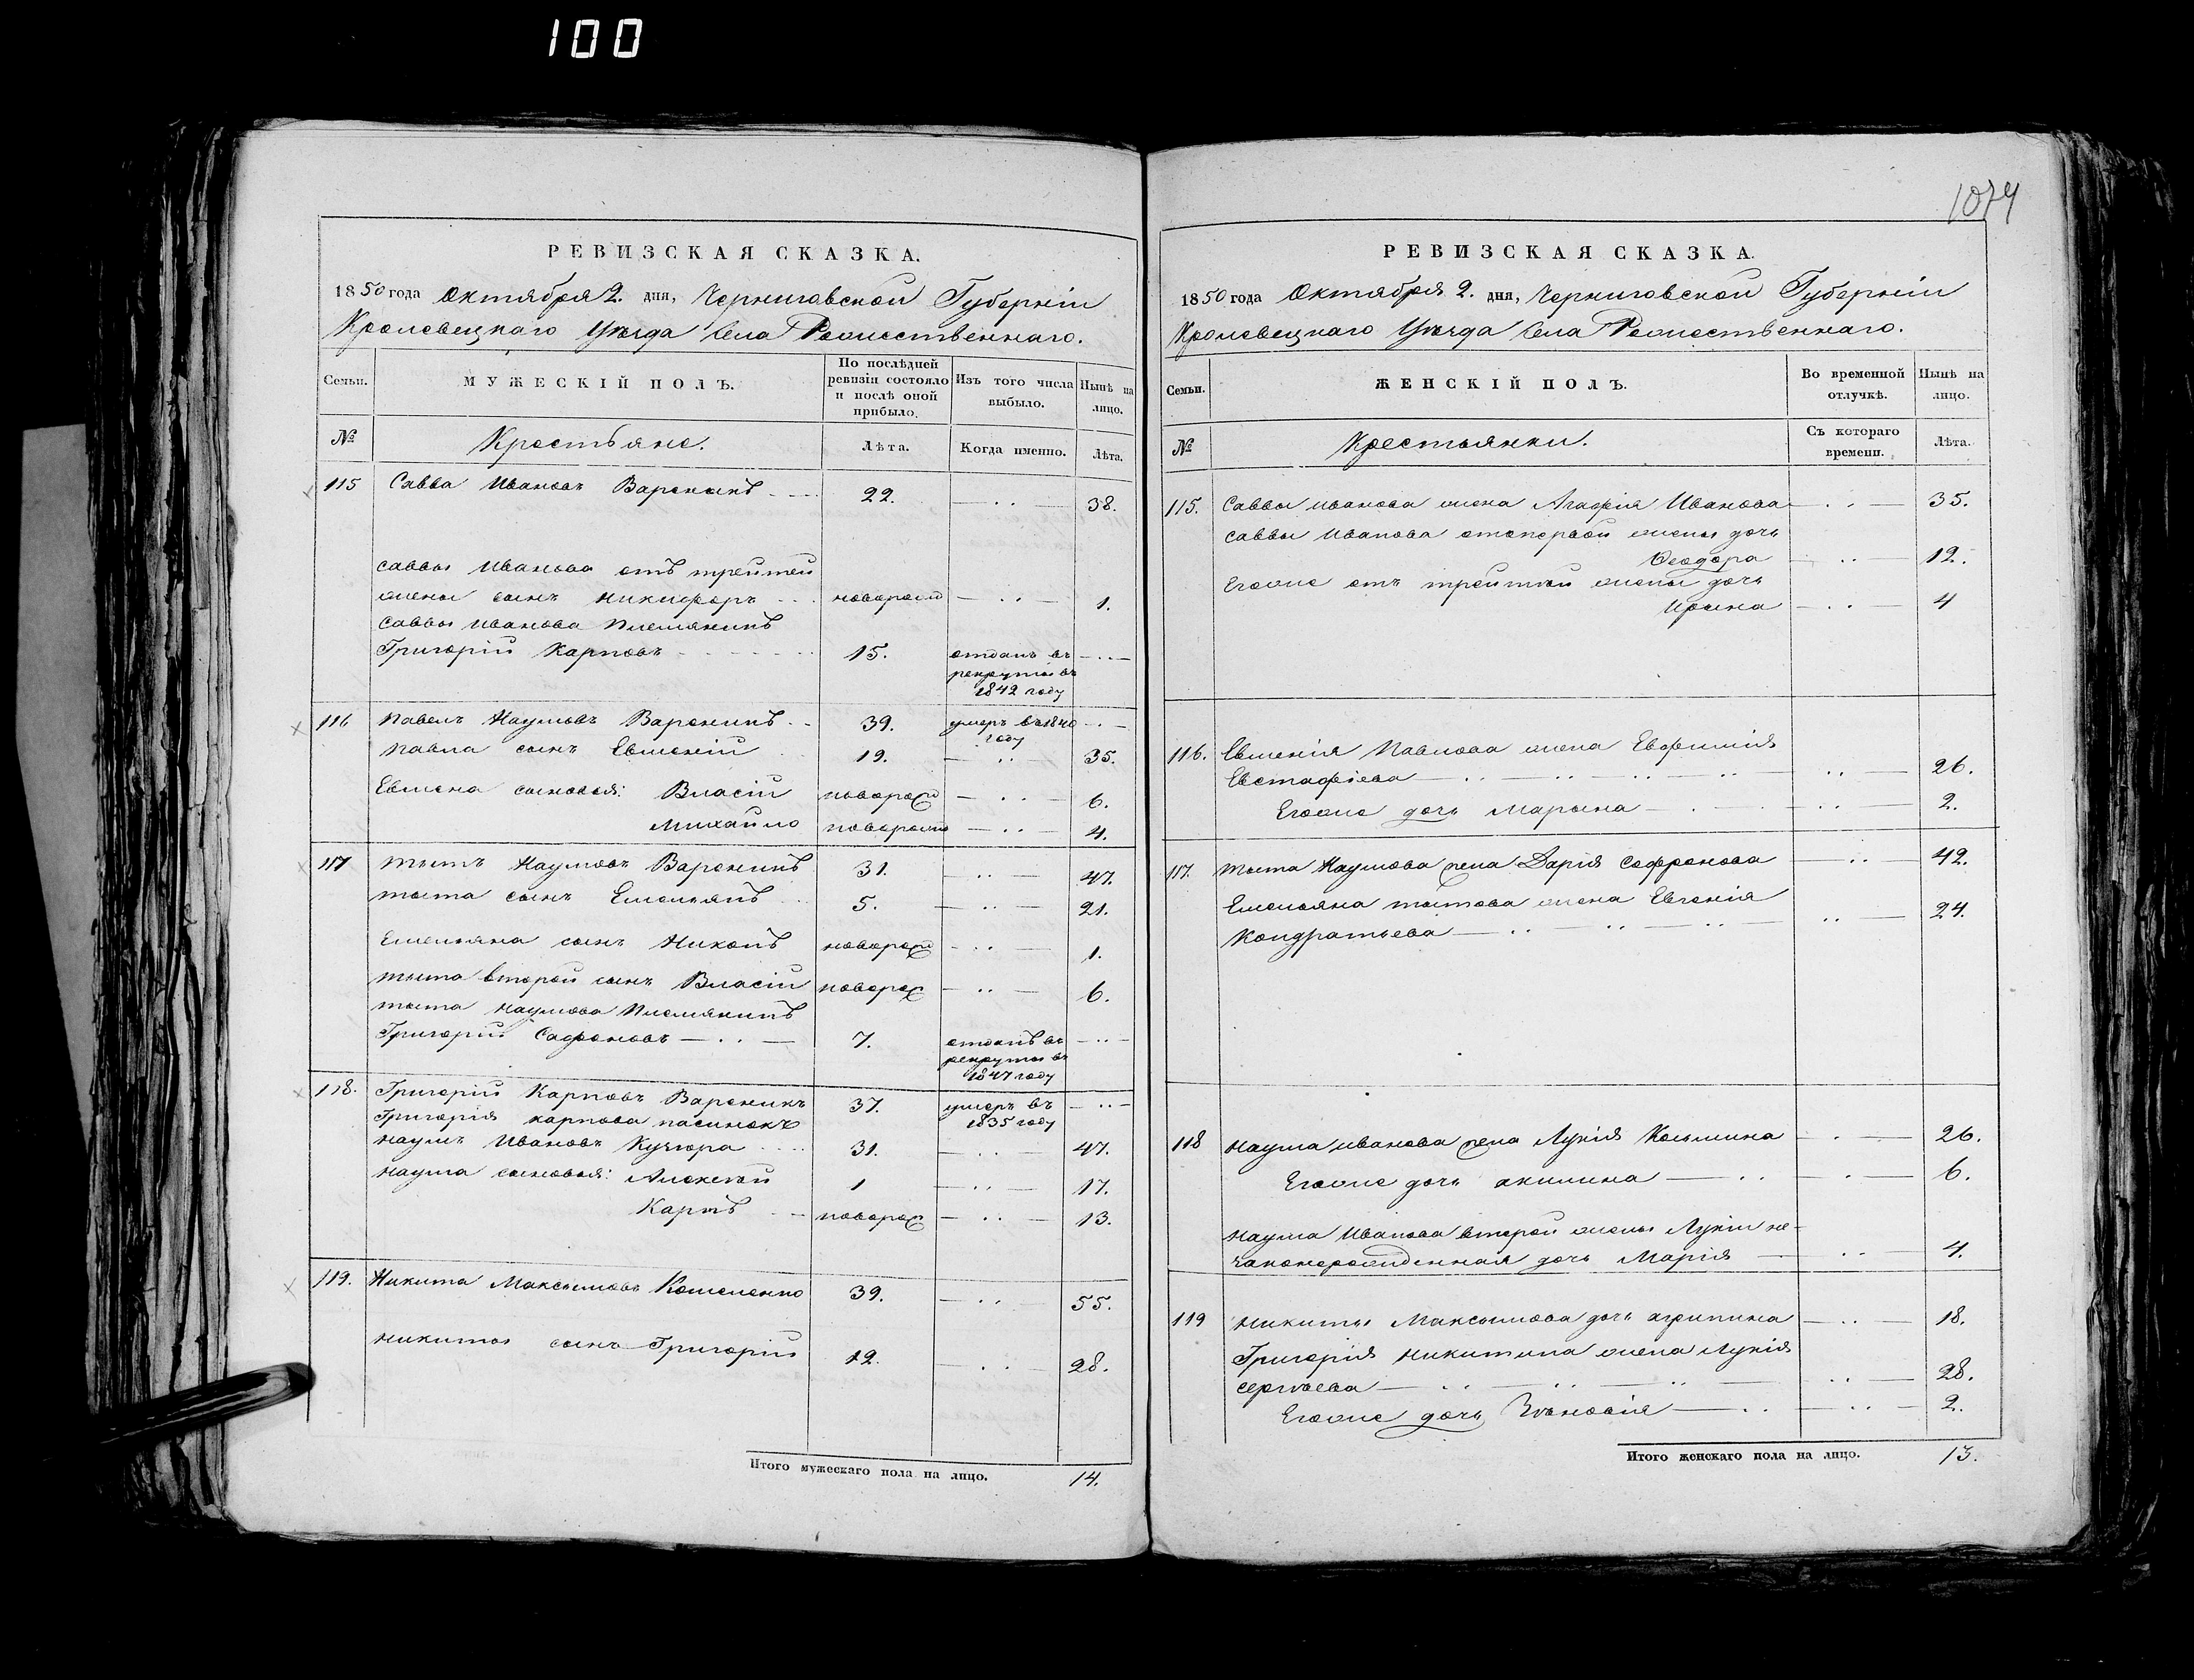 100
РЕВИЗСКАЯ СКАЗКА.
1850 года Октября 2. дня, Черниговской Губерніи
Кролевецкаго Уѣзда села Рожественнаго.
Семьи. МУЖЕСКІЙ ПОЛЪ. По послѣдней ревизіи состояло и послѣ оной прибыло. Изъ того числа выбыло. Нынѣ на лицо.
№ Крестьяне. Лѣта. Когда именно. Лѣта.
115 Савва Ивановъ Вареникъ 22. 38.
Саввы Иванова отъ третей
жены сынъ Никифоръ новорожд 1.
Саввы Иванова племянникъ
Григорій Карповъ 15. отданъ въ рекруты въ 1842 году
116 Павелъ Наумовъ Вареникъ 39. умеръ въ 1840 году
Павла сынъ Евменій 19. 35.
Евмена сыновья: Власій новорожд 6.
Михайло новорожд 4.
117 Тытъ Наумовъ Вареникъ 31. 47.
Тыта сынъ Емельянъ 5. 21.
Емельяна сынъ Никонъ новорожд 1.
Тыта второй сынъ Власій новорож 6.
Тыта Наумова племянникъ
Григорій Сафоновъ 7. отданъ въ рекруты въ 1847 году
118. Григорій Карповъ Вареникъ 37. умеръ въ 1835 году
Григорія Карпова пасинокъ
Наумъ Ивановъ Кучюра 31. 47.
Наума сыновья: Алексѣй 1 17.
Карпъ новорож 13.
119. Никита Максымовъ Кошеленко 39. 55.
Никиты сынъ Григорій 12. 28.
Итого мужескаго пола на лицо. 14.
1074
РЕВИЗСКАЯ СКАЗКА.
1850 года Октября 2. дня, Черниговской Губерніи
Кролевецкаго Уѣзда села Рожественнаго.
Семьи. ЖЕНСКІЙ ПОЛЪ. Во временной отлучкѣ. Нынѣ на лицо.
№ Крестьянки. Съ котораго времени. Лѣта.
115. Саввы Иванова жена Агафія Иванова 35.
Саввы Иванова отъ первой жены дочь
Феодора 12.
Егоже отъ третьей жены дочь
Ирына 4
116. Евменія Павлова жена Евфимія
Евстафіева 26.
Егоже дочь Марына 2.
117. Тыта Наумова жена Дарія Софронова 42.
Емельяна Тытова жена Евгенія
Кондратьева 24.
118 Наума Иванова жена Лукія Козьмина 26.
Егоже дочь Акилина 6.
Наума Иванова второй жены Лукіи не-
законорожденная дочь Марія 4.
119 Никиты Максымова дочь Агрипина 18.
Григорія Никитина жена Лукія
Сергѣева 28.
Егоже дочь Зѣновія 2.
Итого женскаго пола на лицо. 13.